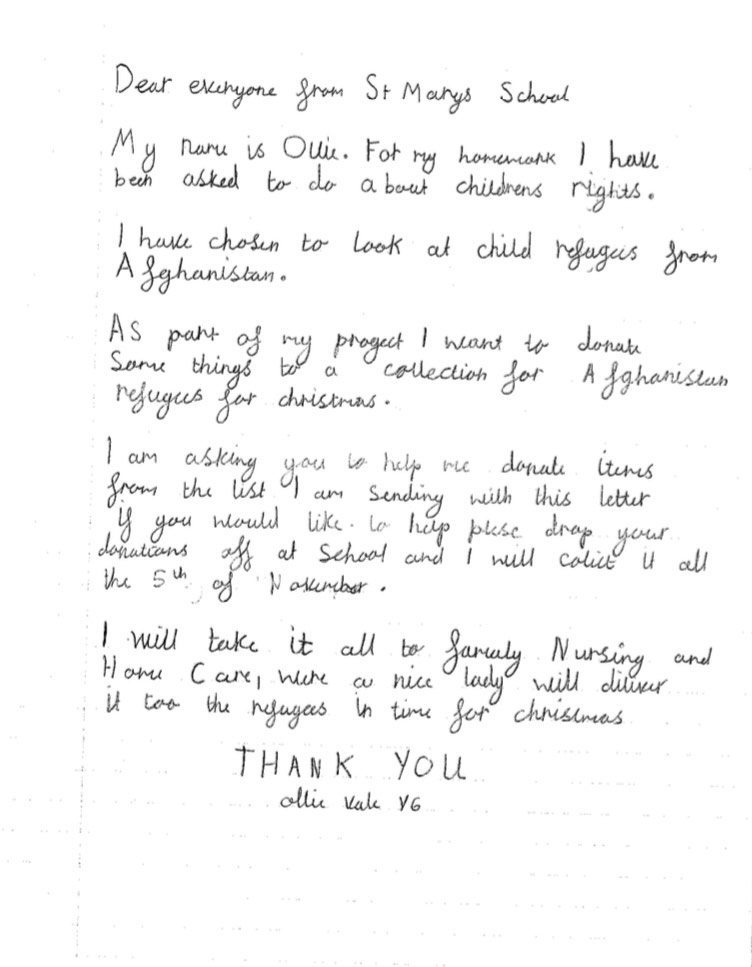 Dear everyone from St Marys School
My name is Ollie. For my homework I have
been asked to do about childrens rights.
I have chosen to look at child refugees from
Afghanistan.
As part of my progect I want to donate
Some things to a collection for Afghanistan
refugees for christmas.
I am asking you to help me donate items
from the list I am sending with this letter
if you would like to help plese drop your
donations off at School and I will colict it all
the 5th of November.
I will take it all to family Nursing and
Home Care, were a nice lady will diliver
it too the refugees in time for christmas
THANK YOU
ollie Vale Y6